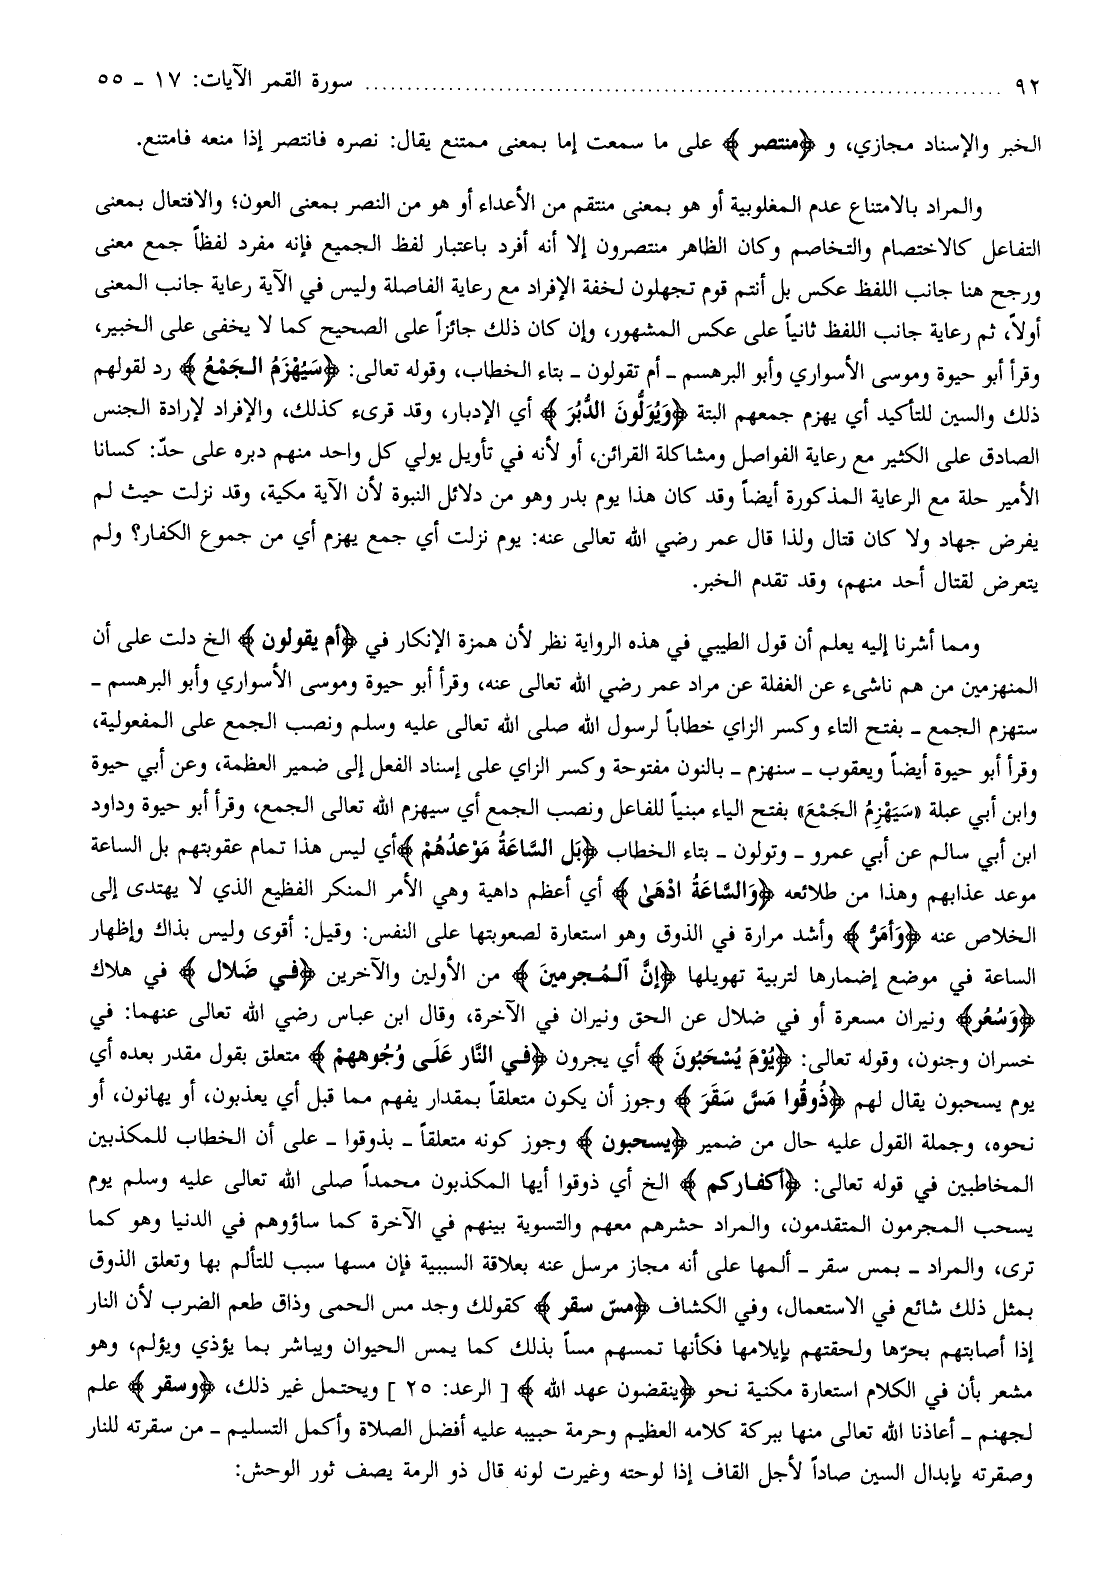 ٩٢ ........................................................ سورة القمر الآيات: ١٧ ـ ٥٥
الخبر والإسناد مجازي، و ﴿منتصر﴾ على ما سمعت إما بمعنى ممتنع يقال: نصره فانتصر إذا منعه فامتنع.
والمراد بالامتناع عدم المغلوبية أو هو بمعنى منتقم من الأعداء أو هو من النصر بمعنى العون؛ والافتعال بمعنى
التفاعل كالاختصام والتخاصم وكان الظاهر منتصرون إلا أنه أفرد باعتبار لفظ الجميع فإنه مفرد لفظاً جمع معنى
ورجح هنا جانب اللفظ عكس بل أنتم قوم تجهلون لخفة الإفراد مع رعاية الفاصلة وليس في الآية رعاية جانب المعنى
أولاً، ثم رعاية جانب اللفظ ثانياً على عكس المشهور، وإن كان ذلك جائزاً على الصحيح كما لا يخفى على الخبير،
وقرأ أبو حيوة وموسى الأسواري وأبو البرهسم ـ أم تقولون ـ بتاء الخطاب، وقوله تعالى: ﴿سَيُهْزَمُ الجَمْعُ﴾ رد لقولهم
ذلك والسين للتأكيد أي يهزم جمعهم البتة ﴿وَيُوَلُّونَ الدُّبُرَ﴾ أي الإدبار، وقد قرىء كذلك، والإفراد لإرادة الجنس
الصادق على الكثير مع رعاية الفواصل ومشاكلة القرائن، أو لأنه في تأويل يولي كل واحد منهم دبره على حدّ: كسانا
الأمير حلة مع الرعاية المذكورة أيضاً وقد كان هذا يوم بدر وهو من دلائل النبوة لأن الآية مكية، وقد نزلت حيث لم
يفرض جهاد ولا كان قتال ولذا قال عمر رضي الله تعالى عنه: يوم نزلت أي جمع يهزم أي من جموع الكفار؟ ولم
يتعرض لقتال أحد منهم، وقد تقدم الخبر.
ومما أشرنا إليه يعلم أن قول الطيبي في هذه الرواية نظر لأن همزة الإنكار في ﴿أم يقولون﴾ الخ دلت على أن
المنهزمين من هم ناشىء عن الغفلة عن مراد عمر رضي الله تعالى عنه، وقرأ أبو حيوة وموسى الأسواري وأبو البرهسم ـ
ستهزم الجمع ـ بفتح التاء وكسر الزاي خطاباً لرسول الله صلى الله تعالى عليه وسلم ونصب الجمع على المفعولية،
وقرأ أبو حيوة أيضاً ويعقوب ـ سنهزم ـ بالنون مفتوحة وكسر الزاي على إسناد الفعل إلى ضمير العظمة، وعن أبي حيوة
وابن أبي عبلة «سَيَهْزِمُ الجَمْعَ» بفتح الياء مبنياً للفاعل ونصب الجمع أي سيهزم الله تعالى الجمع، وقرأ أبو حيوة وداود
ابن أبي سالم عن أبي عمرو ـ وتولون ـ بتاء الخطاب ﴿بَل السَّاعَةُ مَوْعدُهُمْ﴾أي ليس هذا تمام عقوبتهم بل الساعة
موعد عذابهم وهذا من طلائعه ﴿وَالسَّاعَةُ ادْهَىٰ﴾ أي أعظم داهية وهي الأمر المنكر الفظيع الذي لا يهتدى إلى
الخلاص عنه ﴿وَأمَرُّ﴾ وأشد مرارة في الذوق وهو استعارة لصعوبتها على النفس: وقيل: أقوى وليس بذاك وإظهار
الساعة في موضع إضمارها لتربية تهويلها ﴿إنَّ ٱلـمُـجرمينَ﴾ من الأولين والآخرين ﴿فـي ضَلال﴾ في هلاك
﴿وَسُعُر﴾ ونيران مسعرة أو في ضلال عن الحق ونيران في الآخرة، وقال ابن عباس رضي الله تعالى عنهما: في
خسران وجنون، وقوله تعالى: ﴿يَوْمَ يُسْحَبُونَ﴾ أي يجرون ﴿فـي النَّار عَلَـى وُجُوههمْ﴾ متعلق بقول مقدر بعده أي
يوم يسحبون يقال لهم ﴿ذُوقُوا مَسَّ سَقَرَ﴾ وجوز أن يكون متعلقاً بمقدار يفهم مما قبل أي يعذبون، أو يهانون، أو
نحوه، وجملة القول عليه حال من ضمير ﴿يسحبون﴾ وجوز كونه متعلقاً ـ بذوقوا ـ على أن الخطاب للمكذبين
المخاطبين في قوله تعالى: ﴿أكفـاركم﴾ الخ أي ذوقوا أيها المكذبون محمداً صلى الله تعالى عليه وسلم يوم
يسحب المجرمون المتقدمون، والمراد حشرهم معهم والتسوية بينهم في الآخرة كما ساؤوهم في الدنيا وهو كما
ترى، والمراد ـ بمس سقر ـ ألمها على أنه مجاز مرسل عنه بعلاقة السببية فإن مسها سبب للتألم بها وتعلق الذوق
بمثل ذلك شائع في الاستعمال، وفي الكشاف ﴿مسّ سقر﴾ كقولك وجد مس الحمى وذاق طعم الضرب لأن النار
إذا أصابتهم بحرّها ولحقتهم بإيلامها فكأنها تمسهم مساً بذلك كما يمس الحيوان ويباشر بما يؤذي ويؤلم، وهو
مشعر بأن في الكلام استعارة مكنية نحو ﴿ينقضون عهد الله﴾ [ الرعد: ٢٥ ] ويحتمل غير ذلك، ﴿وسقر﴾ علم
لجهنم ـ أعاذنا الله تعالى منها ببركة كلامه العظيم وحرمة حبيبه عليه أفضل الصلاة وأكمل التسليم ـ من سقرته للنار
وصقرته بإبدال السين صاداً لأجل القاف إذا لوحته وغيرت لونه قال ذو الرمة يصف ثور الوحش: